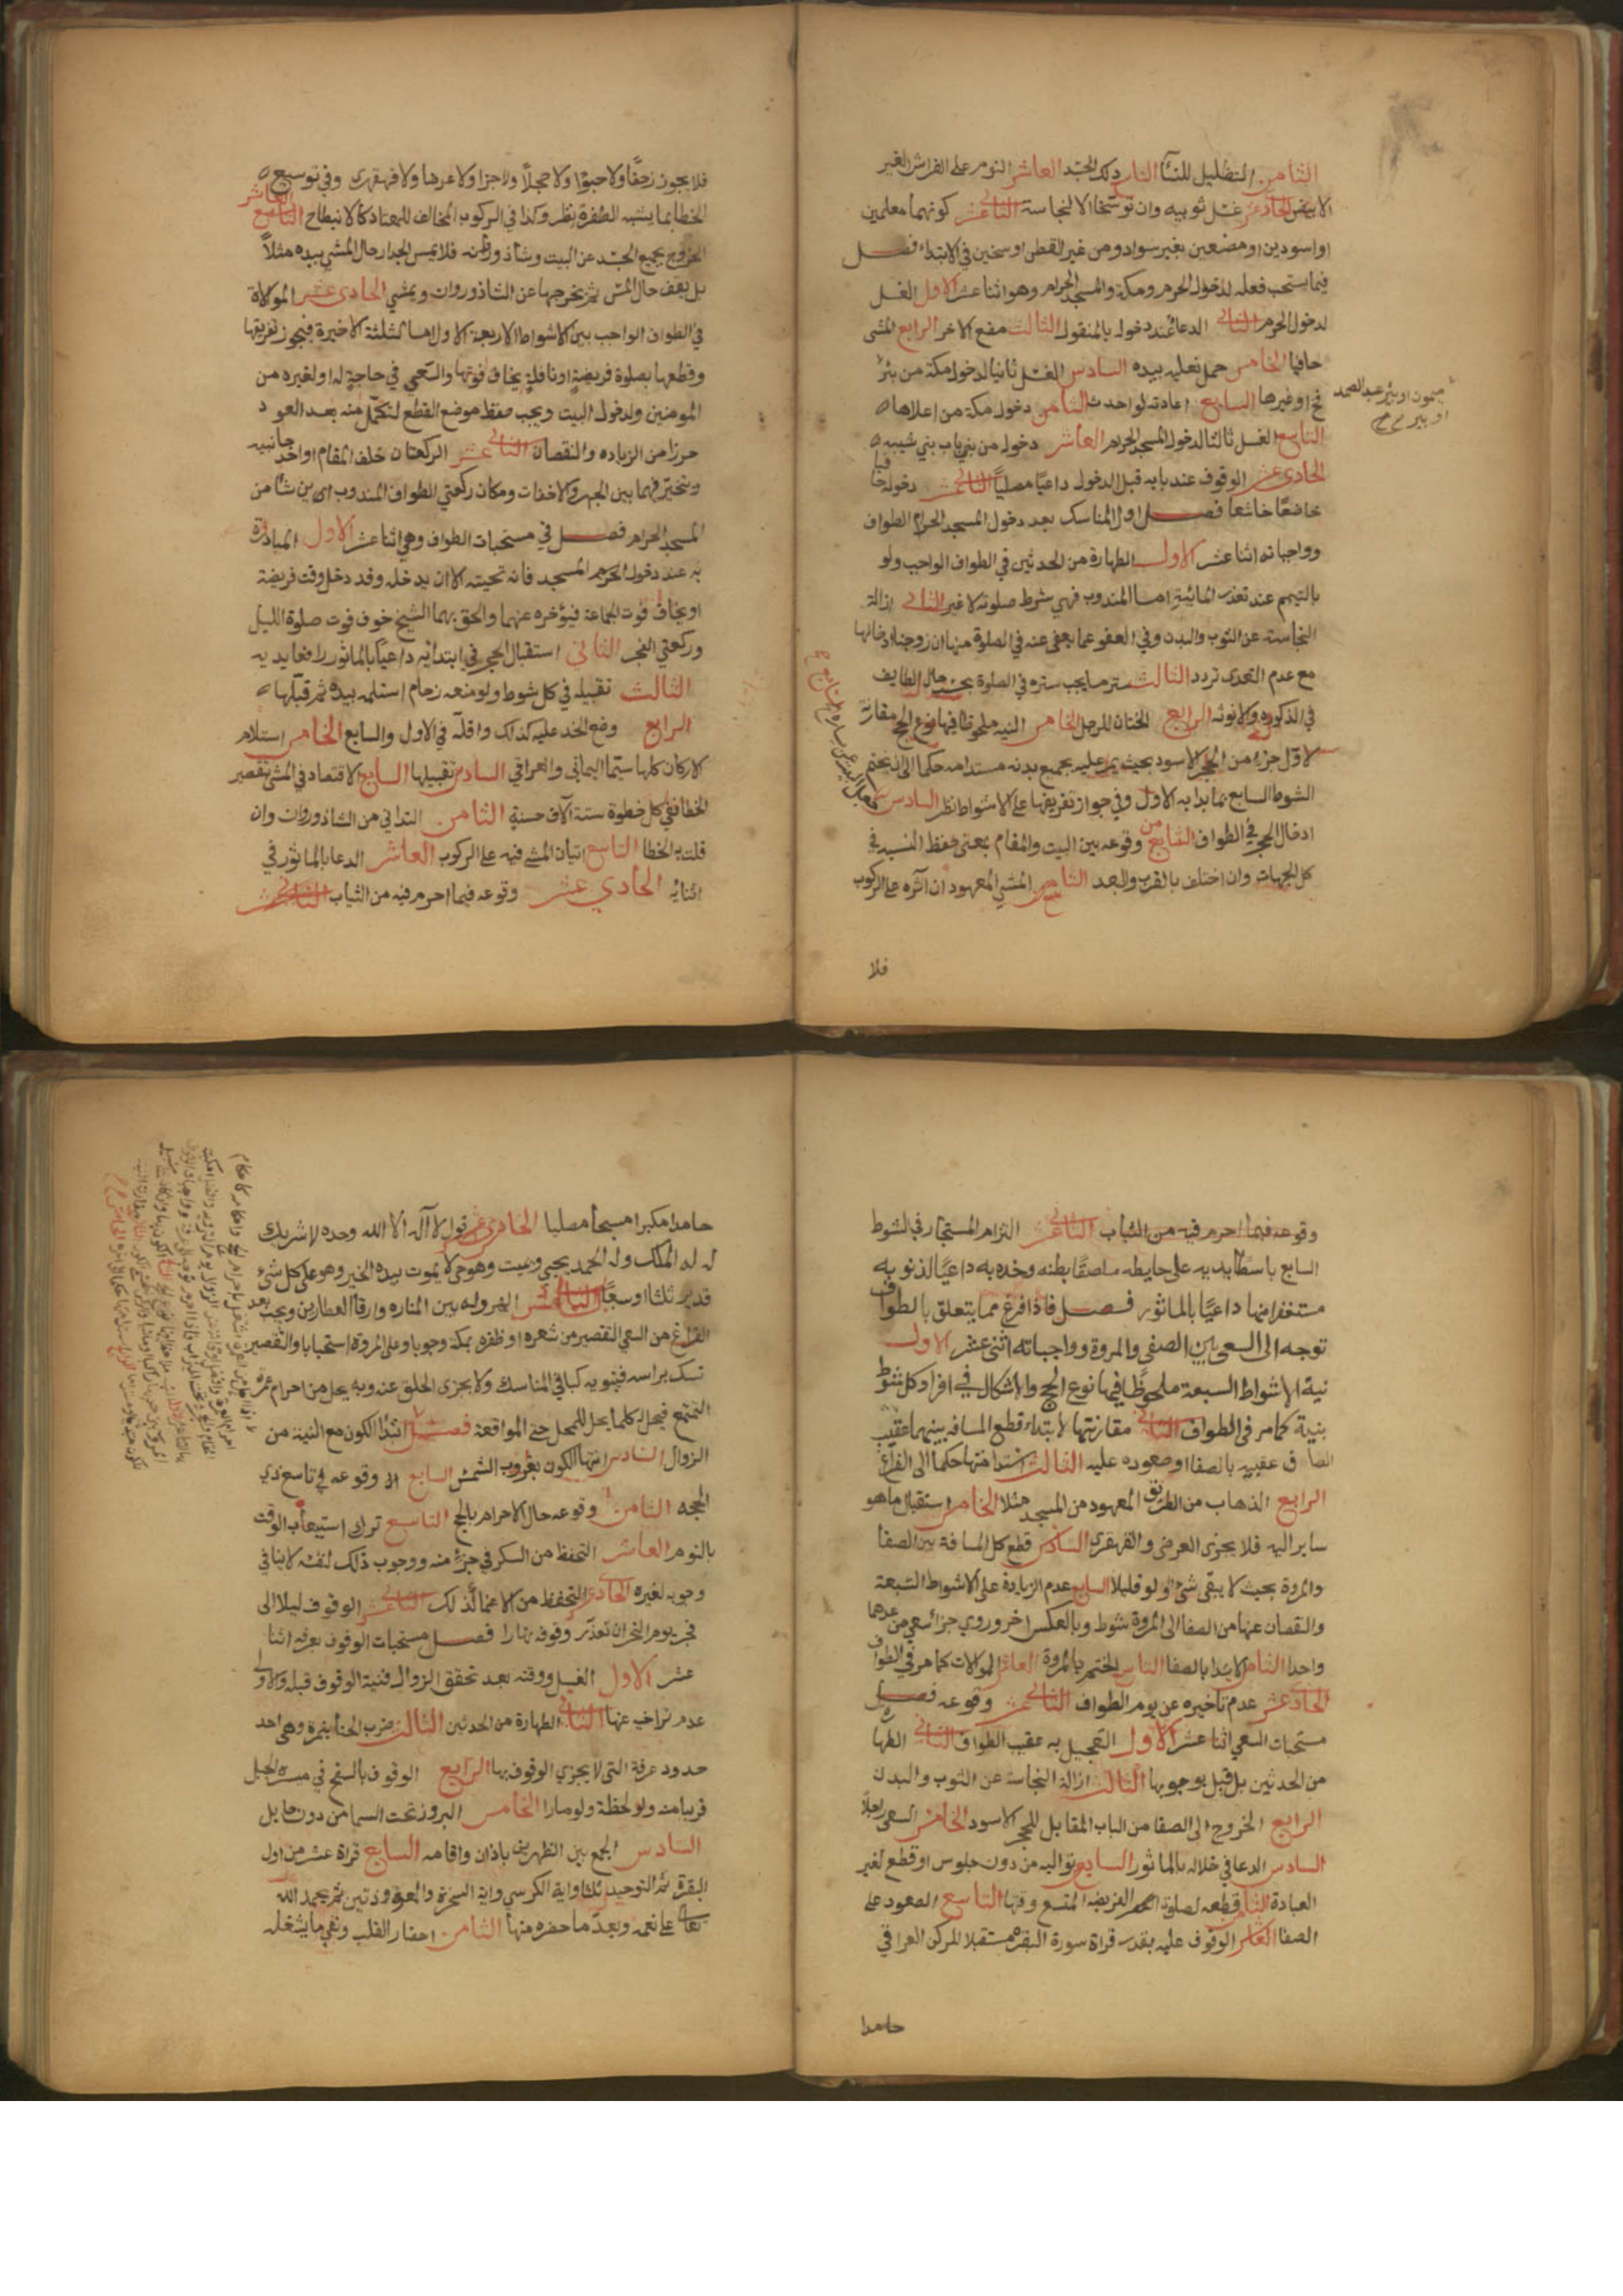 الثامن التظليل للنسا التاسع دلك الجسد العاشر النوم على الفراش الغير
الابيض الحادي عشر غسل ثوبيه وان توسخا الا لنجاسة الثاني عشر كونهما معلمين
او اسودين او مضبعين بغير سواد ومن غير القطن او سخين في الابتداء فصل
فيما يستحب فعله لدخول الحرم ومكة والمسجد الحرام وهو اثنا عشر الاول الغسل
لدخول الحرم الثاني الدعا عند دخوله بالمنقول الثالث مضغ الاذخر الرابع المشى
حافيا الخامس حمل نعليه بيده السادس الغسل ثانيا لدخول مكة من بئر
فخ او غيرها السابع اعادته لو احدث الثامن دخول مكة من اعلاها
ميمون او بئر عبد الصمد
التاسع الغسل ثالثا لدخول المسجد الحرام العاشر دخوله من باب بني شيبه
الحادي عشر الوقوف عند بابه قبل الدخول داعيا مصليا الثاني عشر دخوله حافيا
خاضعا خاشعا فصل اول المناسك بعد دخول المسجد الحرام الطواف
وواجباته اثنا عشر الاول الطهارة من الحدثين في الطواف الواجب ولو
بالتيمم عند تعذر المائية اما المندوب فهي شرط صلوته لا غير الثاني ازالة
النجاسة عن الثوب والبدن وفي العفو عما يعفى عنه في الصلوة منها
مع عدم التعدى تردد الثالث ستر ما يجب ستره في الصلوة بحسب حال الطايف
في الذكورة والانوثة الرابع الختان للرجل الخامس النية ملحوظا فيها نوع الحج مقارنة
لاول جزء من الحجر الاسود بحيث يمر عليه بجميع بدنه مستدامه حكما الى ان يختم
الشوط السابع بما بدا به الاول وفي جواز تفريقها على الاشواط نظر السادس
ادخال الحجر في الطواف السابع وقوعه بين البيت والمقام بمعنى حفظ النسبه في
كل الجهات وان اختلف بالقرب والبعد الثامن المشى المعهود ان آثره على الركوب
فلا
فلا يجوز زحفا ولا حبوا ولا حجلا ولا جمزا ولا عرضا ولا قهقرى وفي توسيع
الخطا بما يشبه الطفرة نظر وكذا في الركوب المخالف للمعتاد كالانبطاح التاسع العاشر
الخروج بجميع الجسد عن البيت وشاذروانه فلا يمس الجدار حال المشي بيده مثلا
بل يقف حال المس ثم يخرجها عن الشاذوروان ويمشي الحادي عشر الموالاة
في الطواف الواجب بين الاشواط الاربعة الاول اما الثلثة الاخيرة فيجوز تفريقها
وقطعها بصلوة فريضة او نافلة يخاف فوتها والسعي في حاجة له او لغيره من
المومنين ولدخول البيت ويجب حفظ موضع القطع لتكمل منه بعد العود
حرزا من الزياده والنقصان الثاني عشر الركعتان خلف المقام او احد جانبيه
ويتخير فيهما بين الجهر والاخفات ومكان ركعتي الطواف المندوب اين شا من
المسجد الحرام فصل في مستحبات الطواف وهي اثنا عشر الاول المبادرة
به عند دخول المسجد فانه تحيته الا ان يدخله وقد دخل وقت فريضة
او يخاف فوت الجماعة فيؤخره عنهما والحق بهما الشيخ خوف فوت صلوة الليل
وركعتي الفجر الثاني استقبال الحجر في ابتدائه داعيا بالماثور رافعا يديه
الثالث تقبيله في كل شوط ولو منعه زحام استلمه بيده ثم قبلها
الرابع وضع الخد عليه كذلك واقله في الاول والسابع الخامس استلام
الاركان كلها سيما اليماني والعراقي السادس تقبيلها السابع الاقتصاد في المشى بتقصير
الخطا ففي كل خطوة ستة الآف حسنة الثامن التداني من الشاذوروان وان
قلت به الخطا التاسع اتيان المشي فيه على الركوب العاشر الدعا بالماثور في
اثنائه الحادي عشر وقوعه فيما احرم فيه من الثياب الثاني عشر
وقوعه فيما احرم فيه من الثياب الثاني عشر التزام المستجار في الشوط
السابع باسطا يديه على حايطه ملصقا بطنه وخده به داعيا لذنوبه
مستغفرا منها داعيا بالماثور فصل فاذا فرغ مما يتعلق بالطواف
توجه الى السعى بين الصفى والمروة وواجباته اثنى عشر الاول
نية الاشواط السبعة ملحوظا فيها نوع الحج والاشكال في افراد كل شوط
بنية كما مر في الطواف الثاني مقارنتها لابتداء قطع المسافه بينهما عقيب
الصاق عقبيه بالصفا او صعوده عليه الثالث استدامتها حكما الى الفراغ
الرابع الذهاب من الطريق المعهود من المسجد مثلا الخامس استقبال ما هو
ساير اليه فلا يجزى العرضى والقهقرى السادس قطع كل المسافة بين الصفا
والمروة بحيث لا يبقى شئ ولو قليلا السابع عدم الزيادة على الاشواط السبعة
والنقصان عنها من الصفا الى المروة شوط وبالعكس اخر وروي جزا سعي من عدهما
واحدا الثامن الابتدا بالصفا التاسع الختم بالمروة العاشر الموالات كما مر في الطواف
الحادي عشر عدم تاخيره عن يوم الطواف الثاني عشر وقوعه فصل
مستحبات السعي اثنا عشر الاول التعجيل به عقيب الطواف الثاني الطهارة
من الحدثين بل قيل بوجوبها الثالث ازالة النجاسة عن الثوب والبدن
الرابع الخروج الى الصفا من الباب المقابل للحجر الاسود الخامس السعى راجلا
السادس الدعا في خلاله بالماثور السابع تواليه من دون جلوس او قطع لغير
العبادة الثامن قطعه لصلوة الفريضه المتسع وقتها التاسع الصعود على
الصفا العاشر الوقوف عليه بقدر قراة سورة البقره مستقبلا للركن العراقي
حامدا
حامدا مكبرا مسبحا مصليا الحادي عشر قول لا اله الا الله وحده لا شريك
له له الملك وله الحمد يحيي ويميت وهو حي لا يموت بيده الخير وهو على كل شئ
قدير ثلثا او سبعا الثاني عشر الهرولة بين المناره وزقاق العطارين ويجب بعد
الفراغ من السعي التقصير من شعره او ظفره بمكة وجوبا وعلى المروة استحبابا والتقصير
نسك براسه فينويه كباقي المناسك ولا يجزى الحلق عنه وبه يحل من احرام عمرة
التمتع فيحل له كلما يحل للمحل حتى المواقعة فصل ابتدا الكون مع النية من
الزوال السادس انتها الكون بغروب الشمس السابع وقوعه في تاسع ذي
الحجه الثامن وقوعه حال الاحرام بالحج التاسع ترك استيعاب الوقت
بالنوم العاشر التحفظ من السكر في جزء منه ووجوب ذلك لنفسه لا ينافي
وجوبه لغيره الحادي عشر التحفظ من الاغما كذلك الثاني عشر الوقوف ليلا الى
فجر يوم النحر ان تعذر وقوفه نهارا فصل مستحبات الوقوف بعرفه اثنا
عشر الاول الغسل ووقته بعد تحقق الزوال فنية الوقوف قبله والاولى
عدم تراخيه عنها الثاني الطهارة من الحدثين الثالث ضرب الخبا بنمرة وهي احد
حدود عرفة التي لا يجزي الوقوف بها الرابع الوقوف بالسفح في ميسرة الجبل
قريبا منه ولو لحظة ولو مارا الخامس البروز تحت السما من دون حايل
السادس الجمع بين الظهرين باذان واقامه السابع قراة عشر من اول
البقرة ثم التوحيد ثلثا واية الكرسي واية السخرة والمعوذتين ثم يحمد الله
تعالى على نعمه ويعد ما حضره منها الثامن احضار القلب ونفي ما يشغله